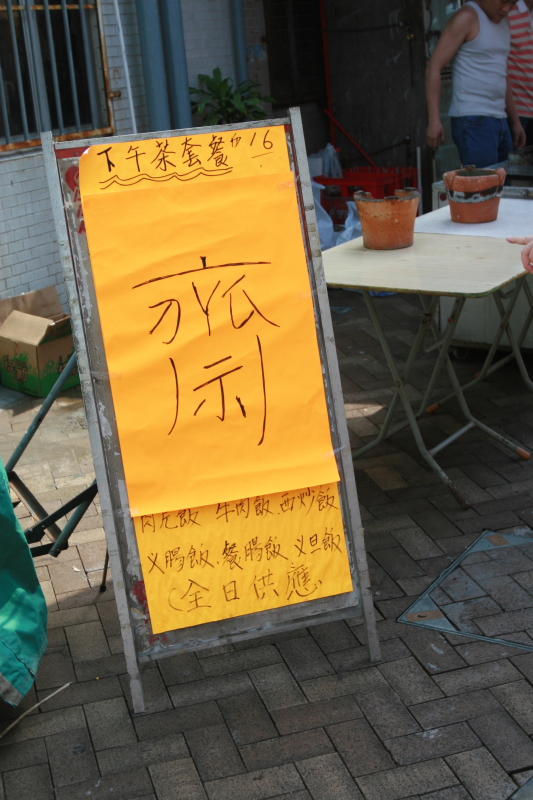 下午茶套餐巾16
齋
肉瓜飯 牛肉飯 西炒飯
乂腸飯 餐腸飯 乂旦飯
(全日供應)